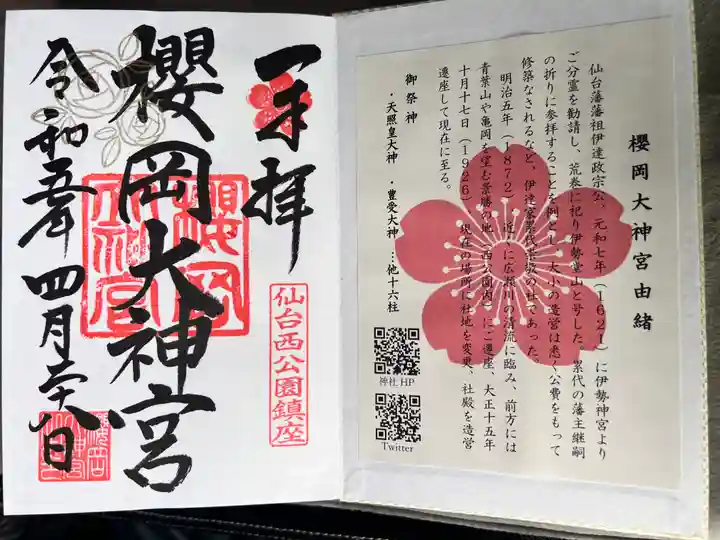 櫻岡大神宮由緒
仙台藩藩祖伊達政宗公、元和七年(1621)に伊勢神宮より
ご分霊を勧請し、荒巻に祀り伊勢堂山と号した。累代の藩主継嗣
の折りに参拝することを例とし、大小の造営は悉く公費をもって
修築なされるなど、伊達家累代崇敬の社であった。
明治五年(1872)近くに広瀬川の清流に臨み、前方には
青葉山や亀岡を望む景勝の地(西公園内)にご遷座、大正十五年
十月十七日(1926)現在の場所に社地を変更、社殿を造営
遷座して現在に至る。
御祭神
・天照皇大神 ・豊受大神 …他十六柱
神社HP
Twitter
奉拝
仙台西公園鎮座
櫻岡大神宮
令和五年四月二十八日